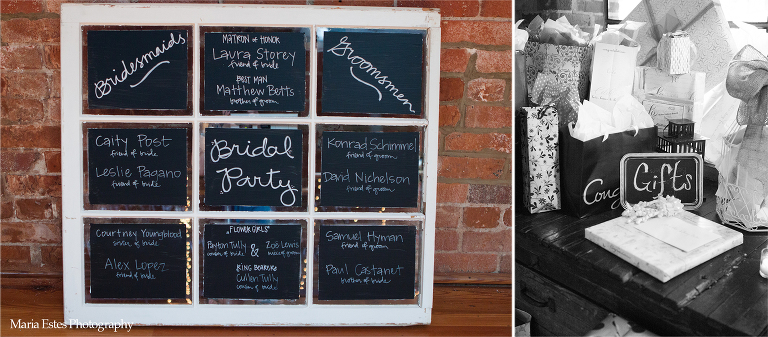 Bridesmaids
MATRON of HONOR
Laura Storey
friend of bride
BEST MAN
Matthew Betts
brother of groom
Groomsmen
Caity Post
friend of bride
Leslie Pagano
friend of bride
Bridal
Party
Konrad Schimmel
friend of groom
David Nichelson
friend of groom
Courtney Youngblood
of bride
Alex Lopez
friend of bride
FLOWER GIRLS
Payton Tully & Zoë Lewis
cousin of bride niece of groom
RING BEARER
Cullen Tully
cousin of bride
Samuel Hyman
friend of groom
Paul Castanet
brother of bride
Maria Estes Photography
Cong
Gifts